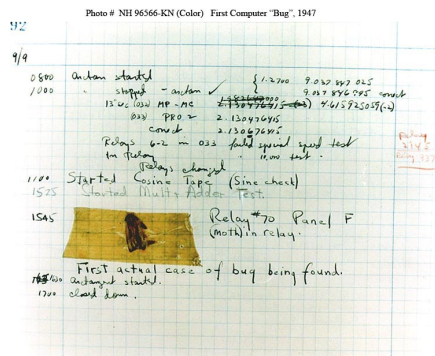 Photo # NH 96566-KN (Color) First Computer "Bug", 1947
92
9/9
0800 Antan started { 1.2700 9.037 847 025
1000 " stopped - antan ✓ 9.037 846 995 correct
13" UC (032) MP - MC 2.130476415 (-3) 4.615925059(-2)
(033) PRO 2 2.130476415
correct 2.130676415
Relays 6-2 in 033 failed special speed test
in Relay " 10.000 test.
Relay
2145
Relays changed
1100 Started Cosine Tape (Sine check)
1525 Started Mult+Adder Test.
1545 Relay #70 Panel F
(Moth) in relay.
First actual case of bug being found.
1630 antangent started.
1700 closed down.